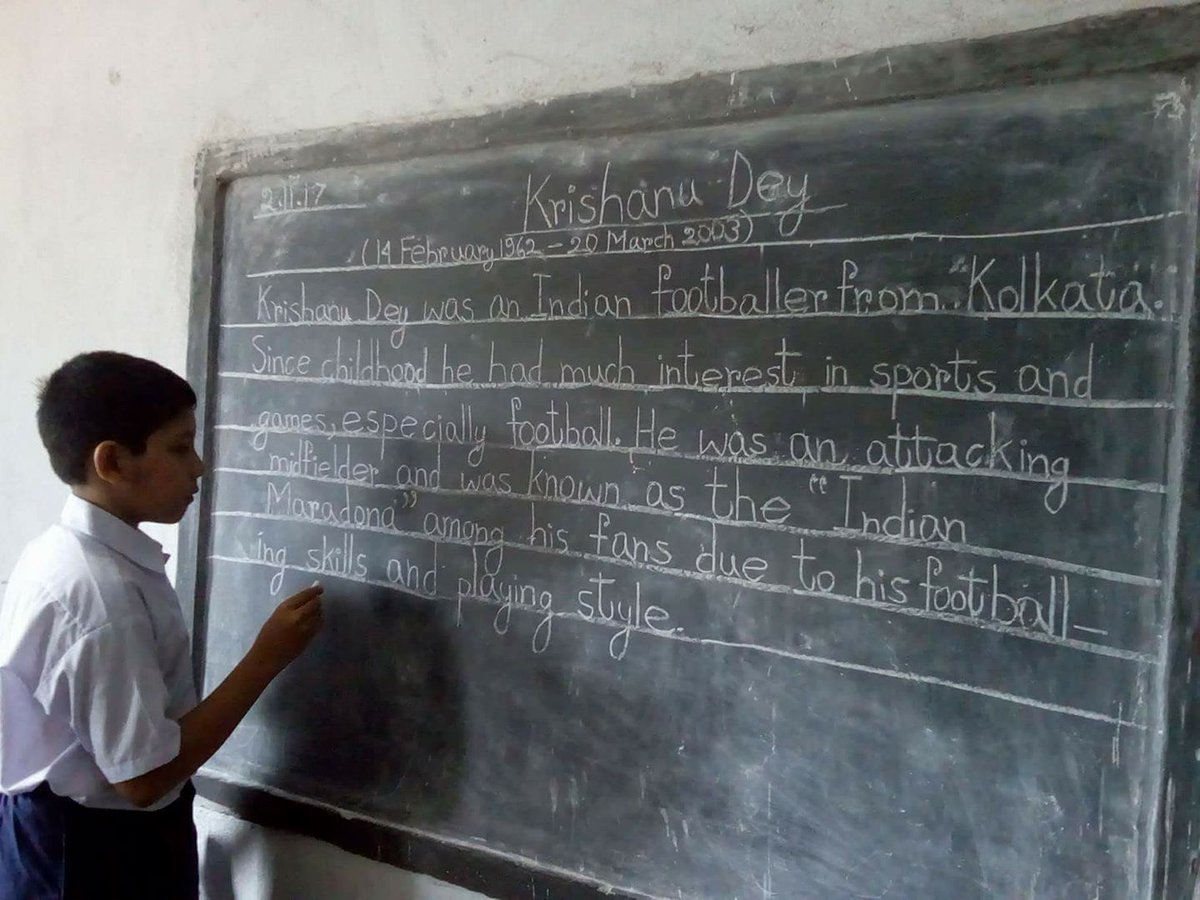 2.11.17
Krishanu Dey
(14 February 1962 - 20 March 2003)
Krishanu Dey was an Indian footballer from Kolkata.
Since childhood he had much interest in sports and
games, especially football. He was an attacking
midfielder and was known as the "Indian
Maradona" among his fans due to his football-
ing skills and playing style.